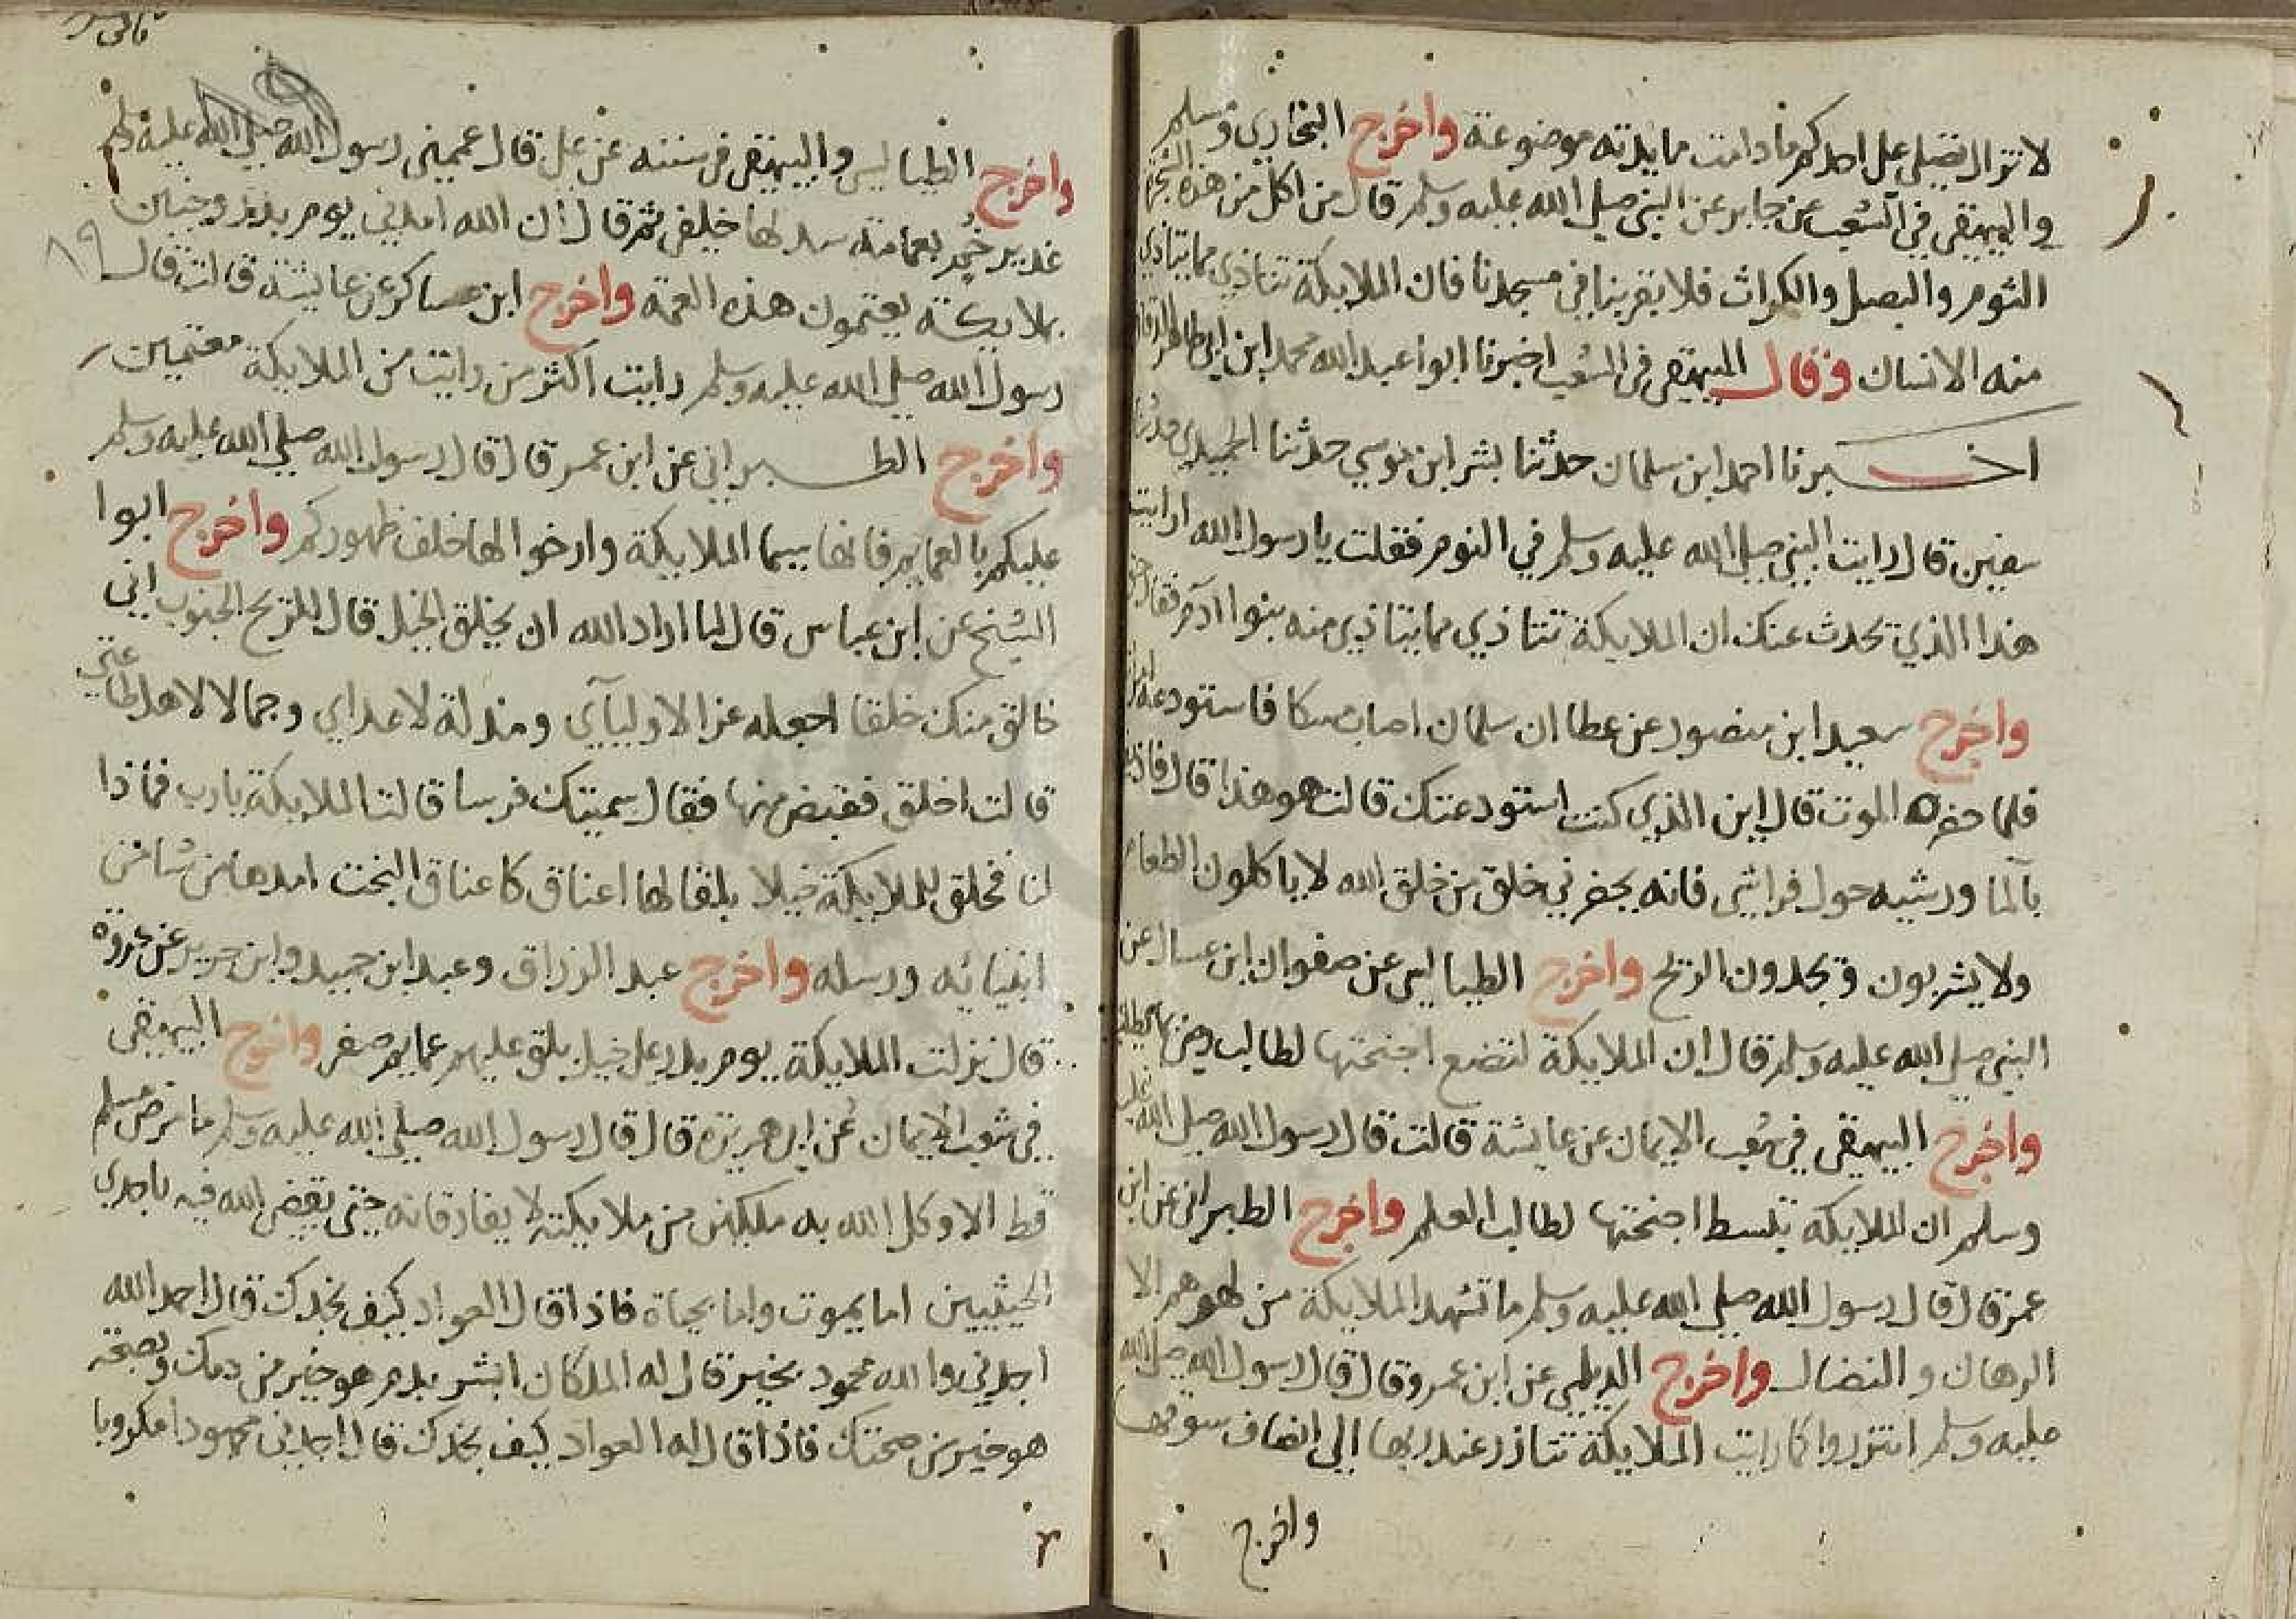 لا تزال تصلي على احدكم ما دامت مايدته موضوعة واخرج البخاري ومسلم
والبيهقي في الشعب عن جابر عن النبي صلى الله عليه وسلم قال من اكل من هذه الشجرة
الثوم والبصل والكراث فلا يقربنا في مسجدنا فان الملايكة تتاذي مما يتاذي
منه الانسان وقال البيهقي في الشعب اخبرنا ابوا عبد الله محمد ابن ابي طاهر الدقاق
اخبرنا احمد ابن سلمان حدثنا بشر ابن موسي حدثنا الحميدي حدثنا
سفين قال رايت النبي صلى الله عليه وسلم في النوم فقلت يا رسول الله ارايت
هذا الذي تحدث عنك ان الملايكة تتاذي مما يتاذي منه بنوا ادم فقال
واخرج سعيد ابن منصور عن عطا ان سلمان اصاب مسكا فاستودعه
فلما حضره الموت قال اين الذي كنت استودعتك قالت هو هذا قال
بالما ورشيه حول فراشي فانه يحضرني خلق من خلق الله لا ياكلون الطعام
ولا يشربون ويجدون الريح واخرج الطيالسي عن صفوان ابن عسال عن
النبي صلى الله عليه وسلم قال ان الملايكة لتضع اجنحتها لطالب
واخرج البيهقي في شعب الايمان عن عايشة قالت قال رسول الله صلى الله عليه
وسلم ان الملايكة تبسط اجنحتها لطالب العلم واخرج الطبراني عن ابن
عمر قال قال رسول الله صلى الله عليه وسلم ما تشهد الملايكة من لهوهم الا
الرهان والنضال واخرج الديلمي عن ابن عمرو قال قال رسول الله صلى الله
عليه وسلم ائتزروا كما رايت الملايكة تتازر عند ربها الي انصاف سوقها
واخرج
واخرج الطيالسي والبيهقي في سننه عن علي قال عممني رسول الله صلى الله عليه وسلم
غدير خم بعمامة سدلها خلفي ثم قال ان الله امدني يوم بدر وحنين
بملايكة يعتمون هذه العمة واخرج ابن عساكر عن عايشة قالت قال
٨٩
رسول الله صلى الله عليه وسلم رايت اكثر من رايت من الملايكة معتمين
واخرج الطبراني عن ابن عمر قال قال رسول الله صلى الله عليه وسلم
عليكم بالعمايم فانها سيما الملايكة وارخوا لها خلف ظهوركم واخرج ابوا
الشيخ عن ابن عباس قال لما اراد الله ان يخلق الخيل قال للريح الجنوب اني
خالق منك خلقا اجعله عزا لاوليآي ومذلة لاعداي وجمالا لاهل طاعتي
قالت اخلق فقبض منها فقال سميتك فرسا قالت الملايكة يارب فماذا
لنا فخلق للملايكة خيلا بلقا لها اعناق كاعناق البخت امدها من شا من
انبيائه ورسله واخرج عبد الرزاق وعبد ابن حميد وابن جرير عن عروة
قال نزلت الملايكة يوم بدر على خيل بلق عليهم عمايم صفر واخرج البيهقي
في شعب الايمان عن ابي هريرة قال قال رسول الله صلى الله عليه وسلم ما مرض مسلم
قط الا وكل الله به ملكين من ملايكته لا يفارقانه حتى يقضي الله فيه باحدي
الحسنيين اما بموت واما بحياة فاذا قال العواد كيف تجدك قال احمد الله
اجدني والله محمود بخير قال له الملكان ابشر بدم هو خير من دمك وبصحة
هو خير من صحتك فاذا قال له العواد كيف تجدك قال اجدني مجهودا مكروبا